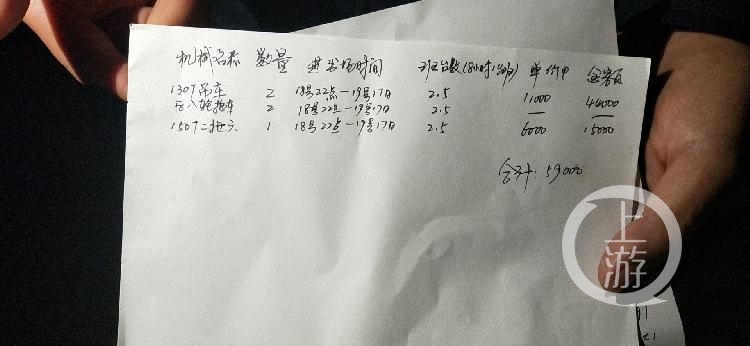 机械名称 数量 进出场时间 班台数(8小时1台班) 单价 金额
130T吊车 2 18号22点—19号17点 2.5 11000 44000
2 18号22点—19号17点 2.5 — —
150T二拖六 1 18号22点—19号17点 2.5 6000 15000
合计:59000
上游